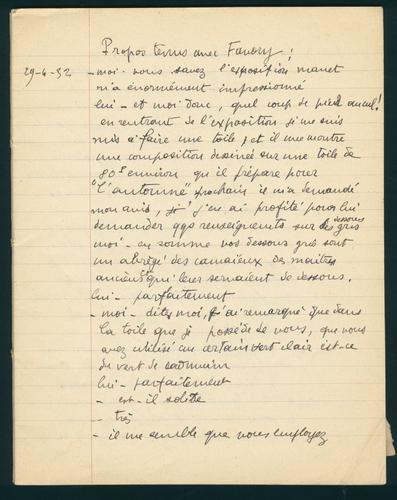 Propos tenus avec Favory !
29-6-32 - moi - vous savez l'exposition manet
m'a énormément impressionné
lui - et moi donc, quel coup de pied au cul!
en rentrant de l'exposition je me suis
mis à faire une toile, et il me montre
une composition dessinée sur une toile de
80F environ qu'il prépare pour
"l'automne" prochain il m'a demandé
mon avis, j'en ai profité pour lui
demander qqs renseignements sur les dessous gris
moi - en somme vos dessous gris sont
un abrégé des camaïeux des maîtres
anciens qui leur servaient de dessous.
lui - parfaitement
- moi - dites moi, j'ai remarqué que dans
la toile que je possède de vous, que vous
avez utilisé un certain vert clair est-ce
du vert de cadmium
lui - parfaitement
- est-il solide
- très
- il me semble que vous employez